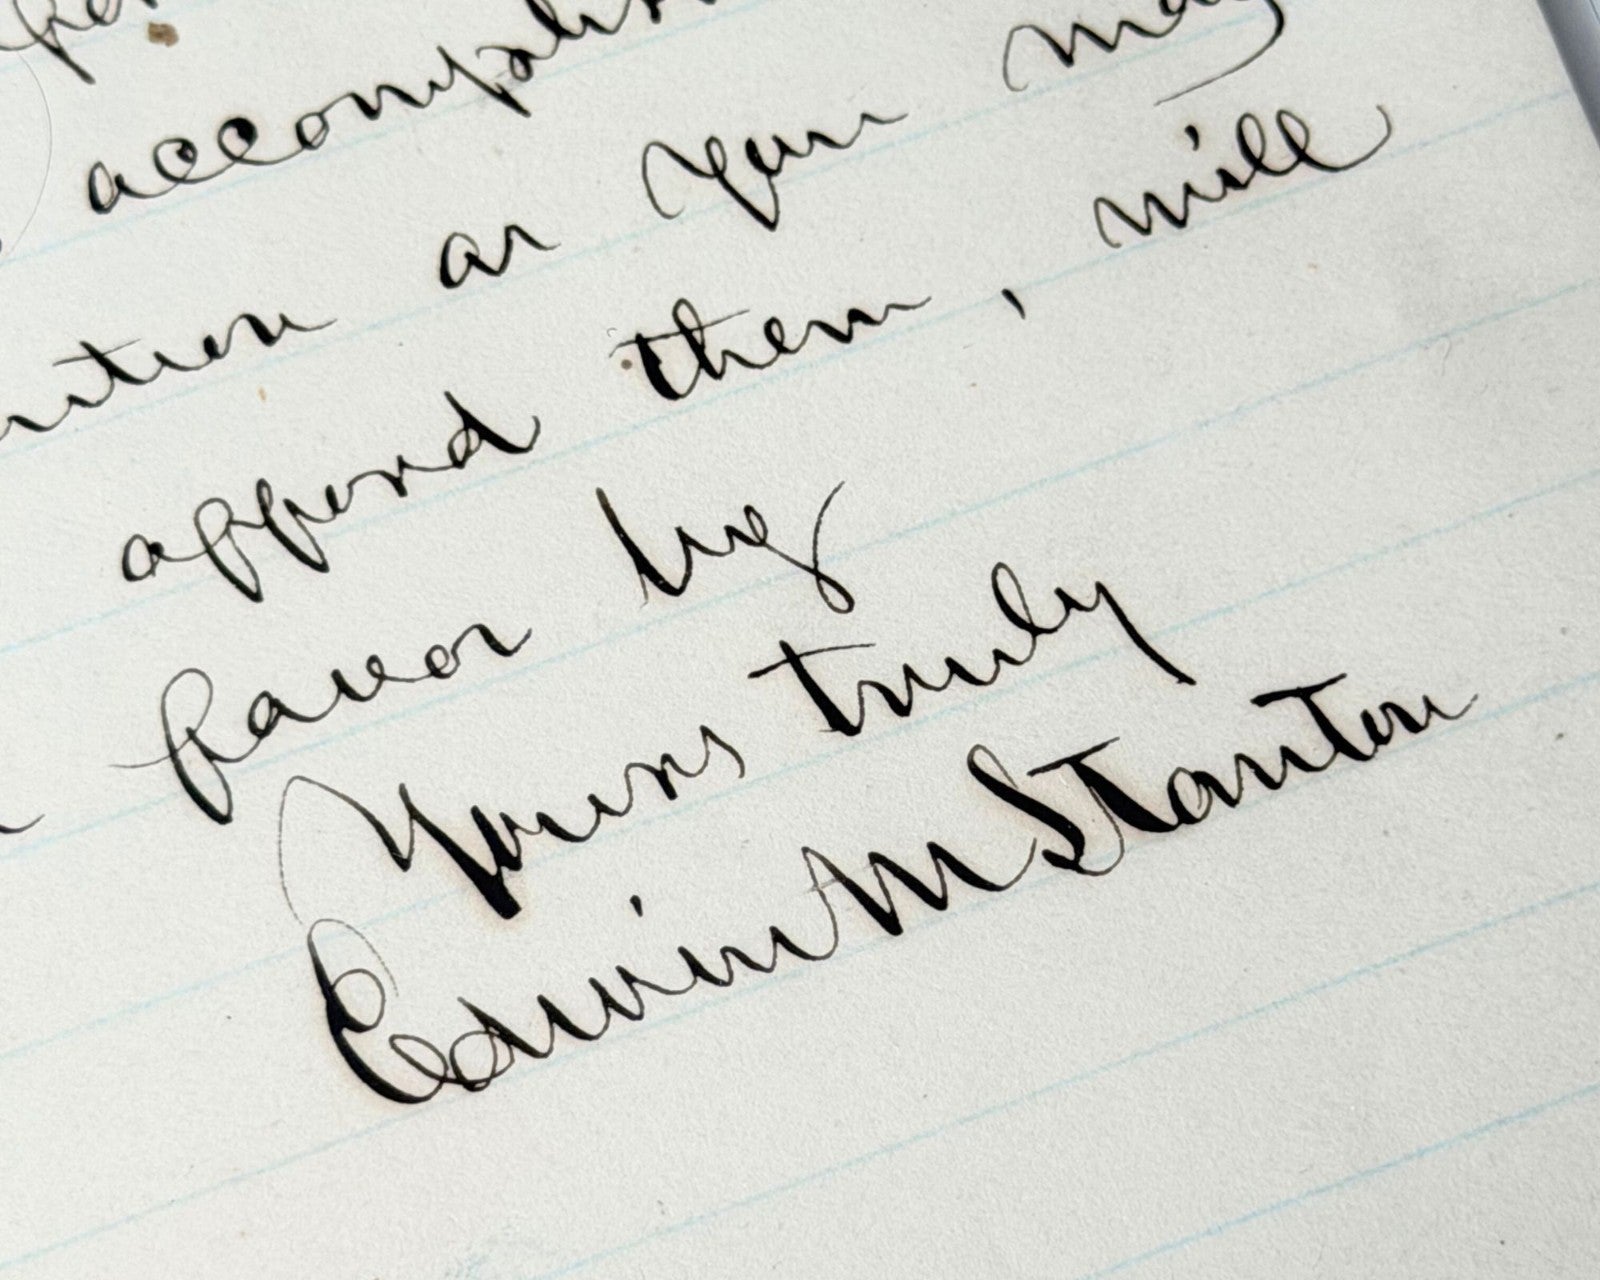 accomp
as you may
append them, will
favor by
Yours truly
Edwin M Stanton